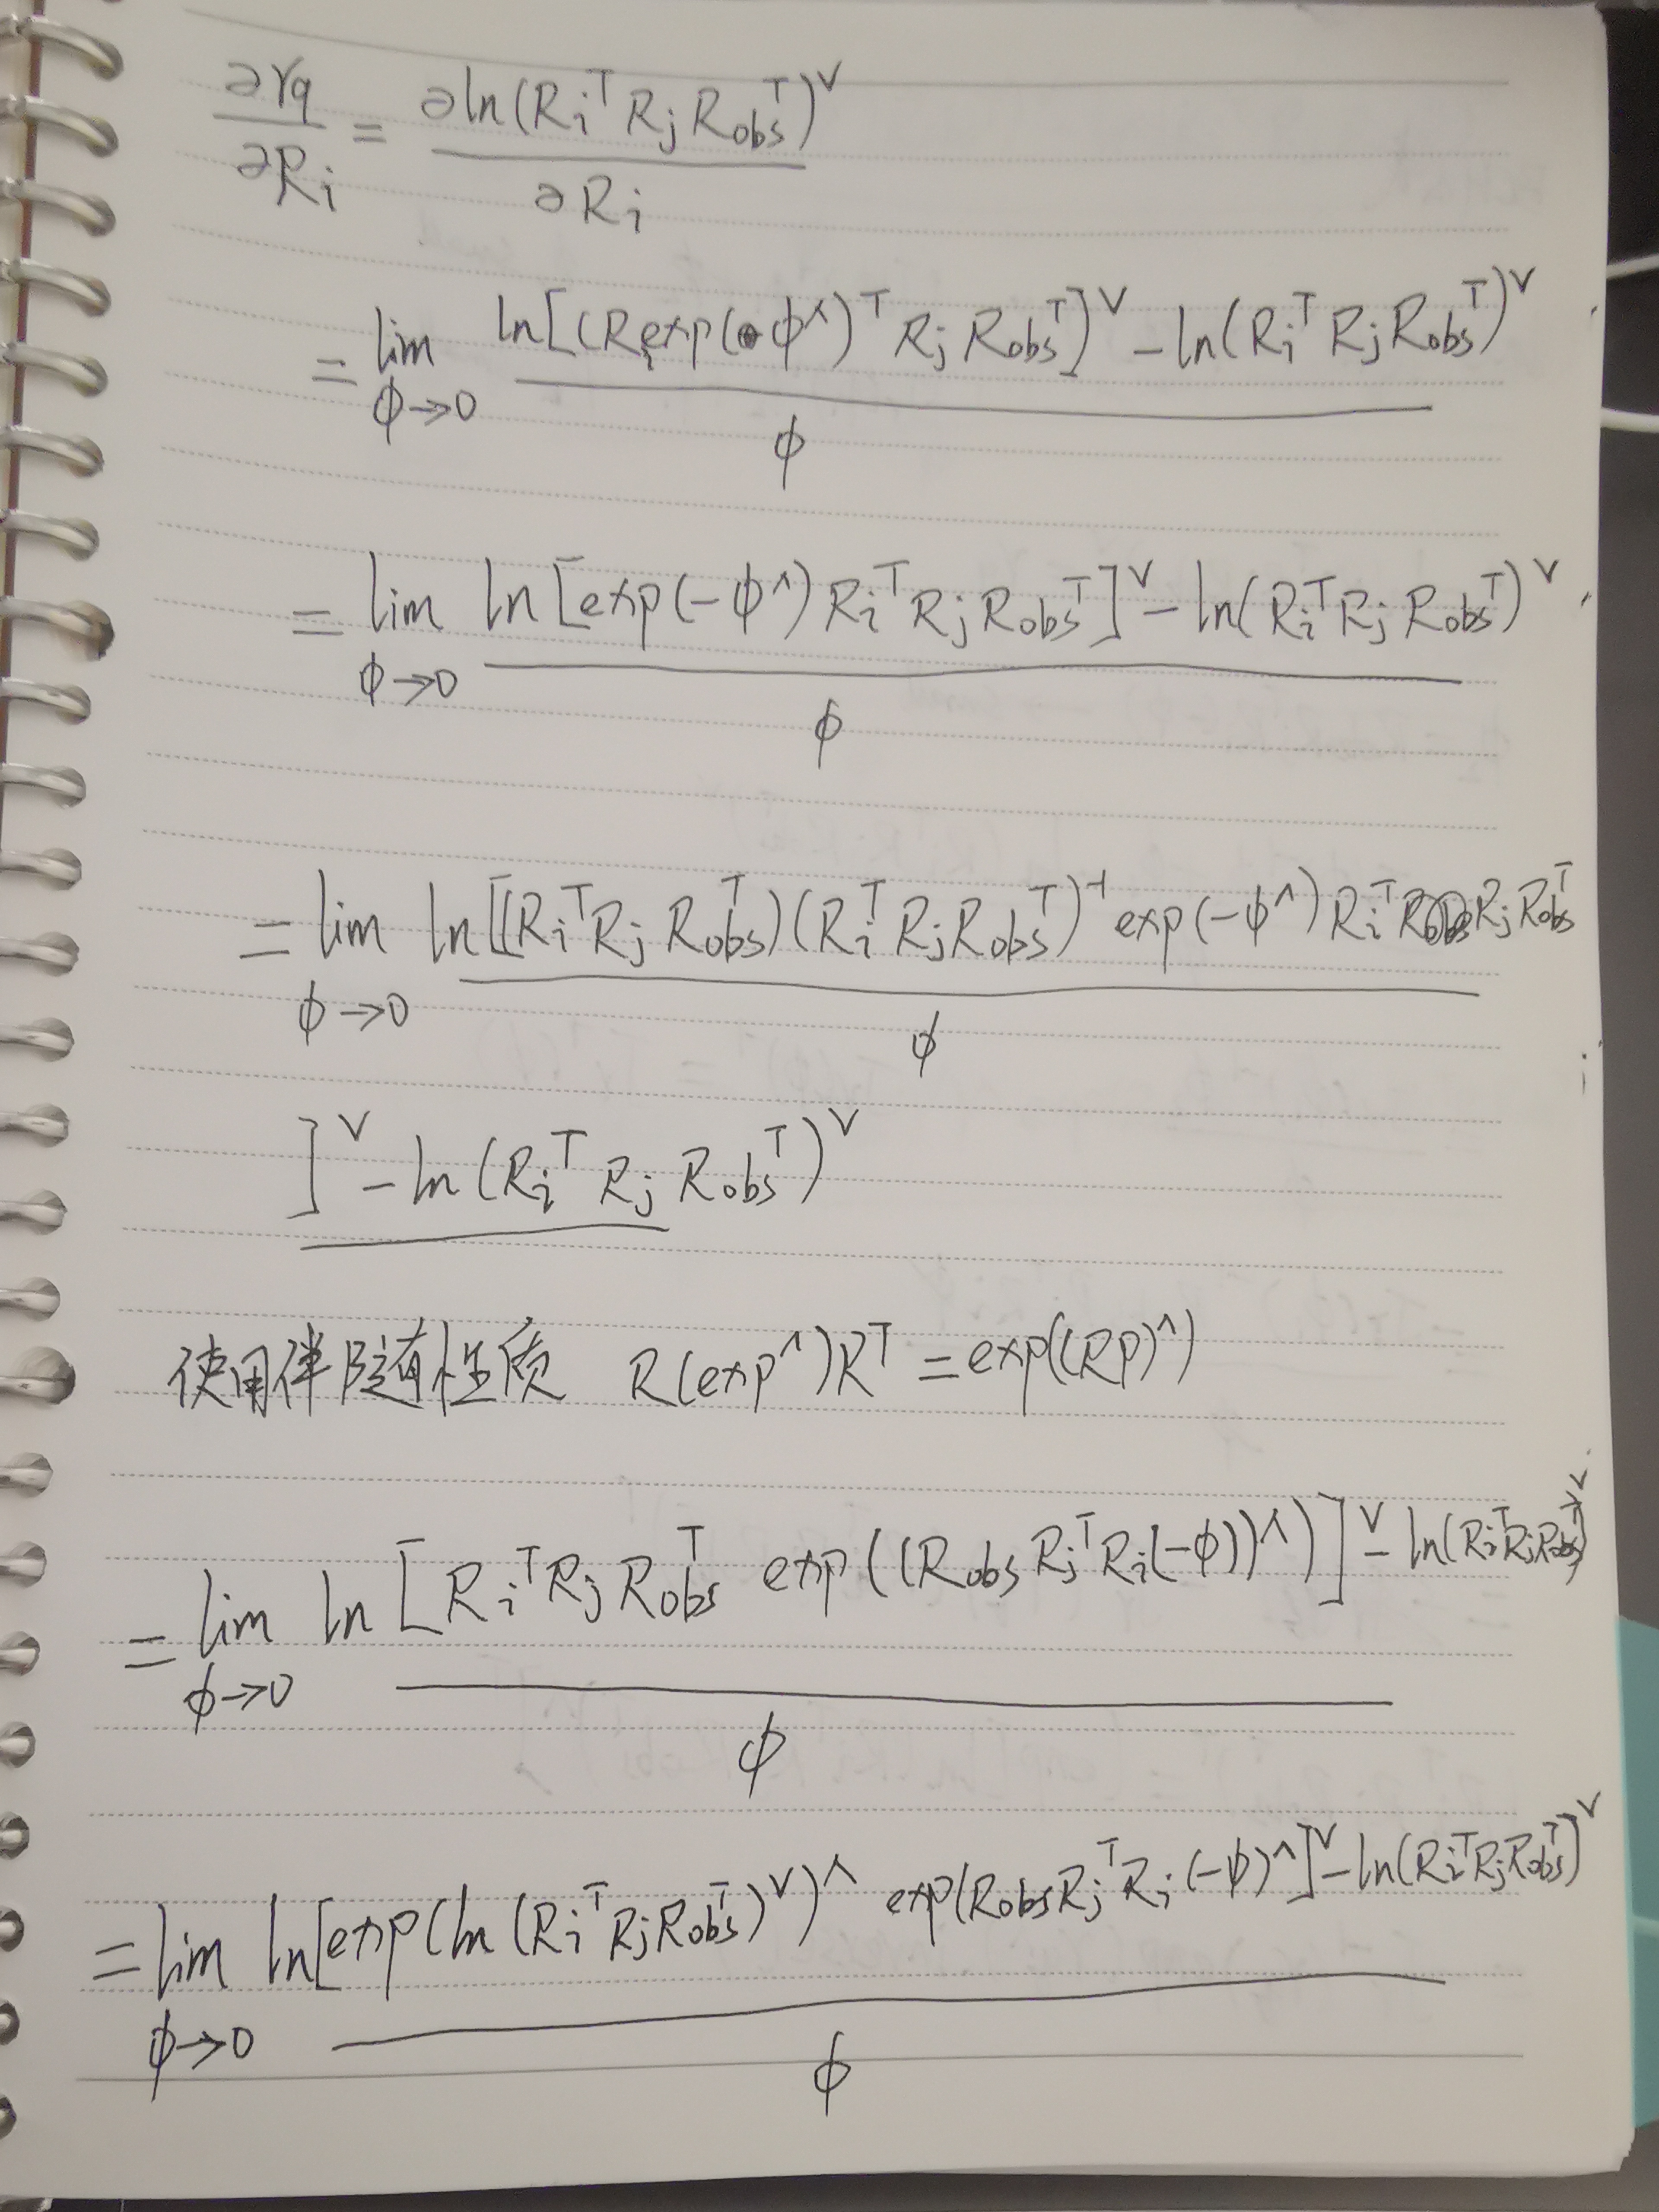 ∂rq/∂Ri = ∂ln(Ri^T Rj Robs^T)^∨ / ∂Ri
= lim ϕ→0 ln[(Ri exp(ϕ^∧)^T Rj Robs^T]^∨ − ln(Ri^T Rj Robs^T)^∨ / ϕ
= lim ϕ→0 ln[exp(−ϕ^∧) Ri^T Rj Robs^T]^∨ − ln(Ri^T Rj Robs^T)^∨ / ϕ
= lim ϕ→0 ln[(Ri^T Rj Robs^T)(Ri^T Rj Robs^T)^-1 exp(−ϕ^∧) Ri^T Rj Robs^T / ϕ
]^∨ − ln(Ri^T Rj Robs^T)^∨
使用伴随性质 R(exp^∧)R^T = exp((Rp)^∧)
= lim ϕ→0 ln[Ri^T Rj Robs^T exp((Robs Rj^T Ri(−ϕ))^∧)]^∨ − ln(Ri^T Rj Robs^T)^∨ / ϕ
= lim ϕ→0 ln[exp(ln(Ri^T Rj Robs^T)^∨)^∧ exp(Robs Rj^T Ri(−ϕ)^∧]^∨ − ln(Ri^T Rj Robs^T)^∨ / ϕ